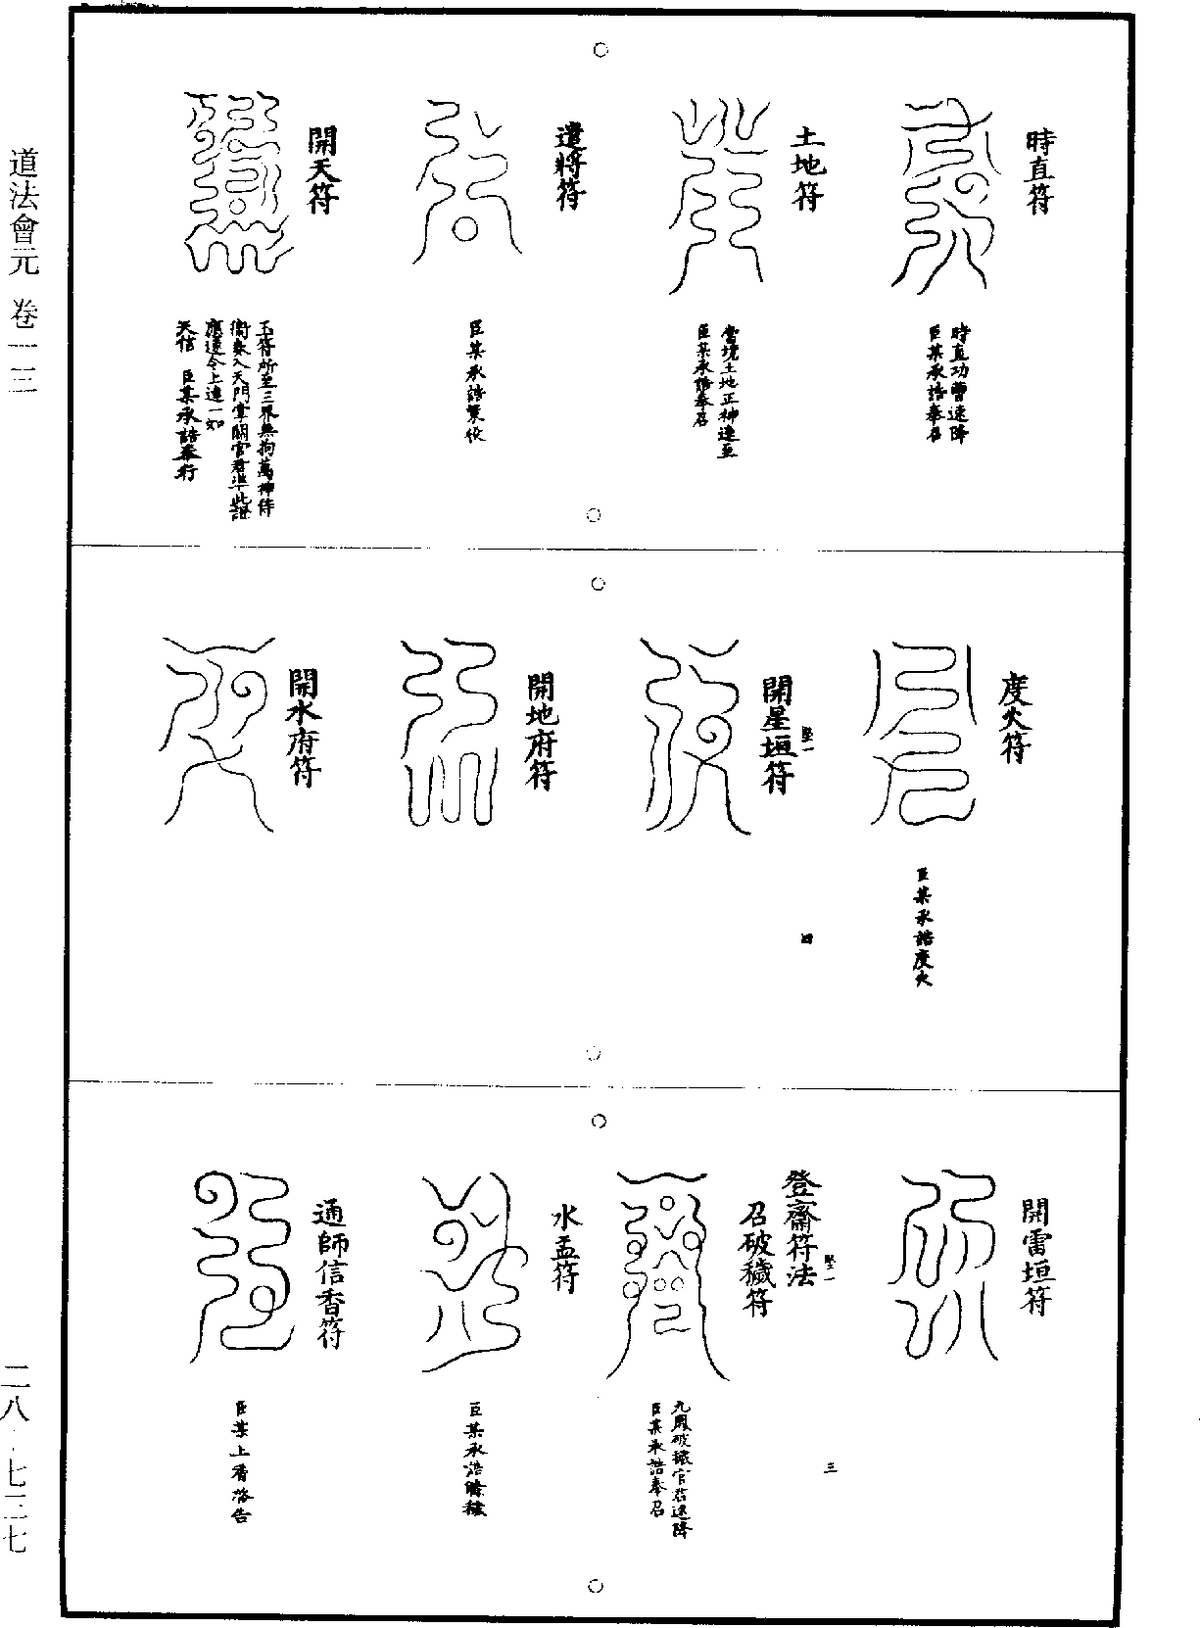 時直符
時直功曹速降
臣某承誥奉召
土地符
當境土地正神速至
臣某承誥奉召
遣將符
臣某承誥策役
開天符
玉符所至三界無拘萬神侍
衛奏入天門掌關官君準此證
應速令上達一如
天信 臣某承誥奉行
度火符
臣某承誥度火
開星垣符
四
開地府符
開水府符
開雷垣符
三
登齋符法
召破穢符
九鳳破穢官君速降
臣某承誥奉召
水盂符
臣某承誥滌穢
通師信香符
臣某上香啓告
道法會元 卷一三
二八·七三七